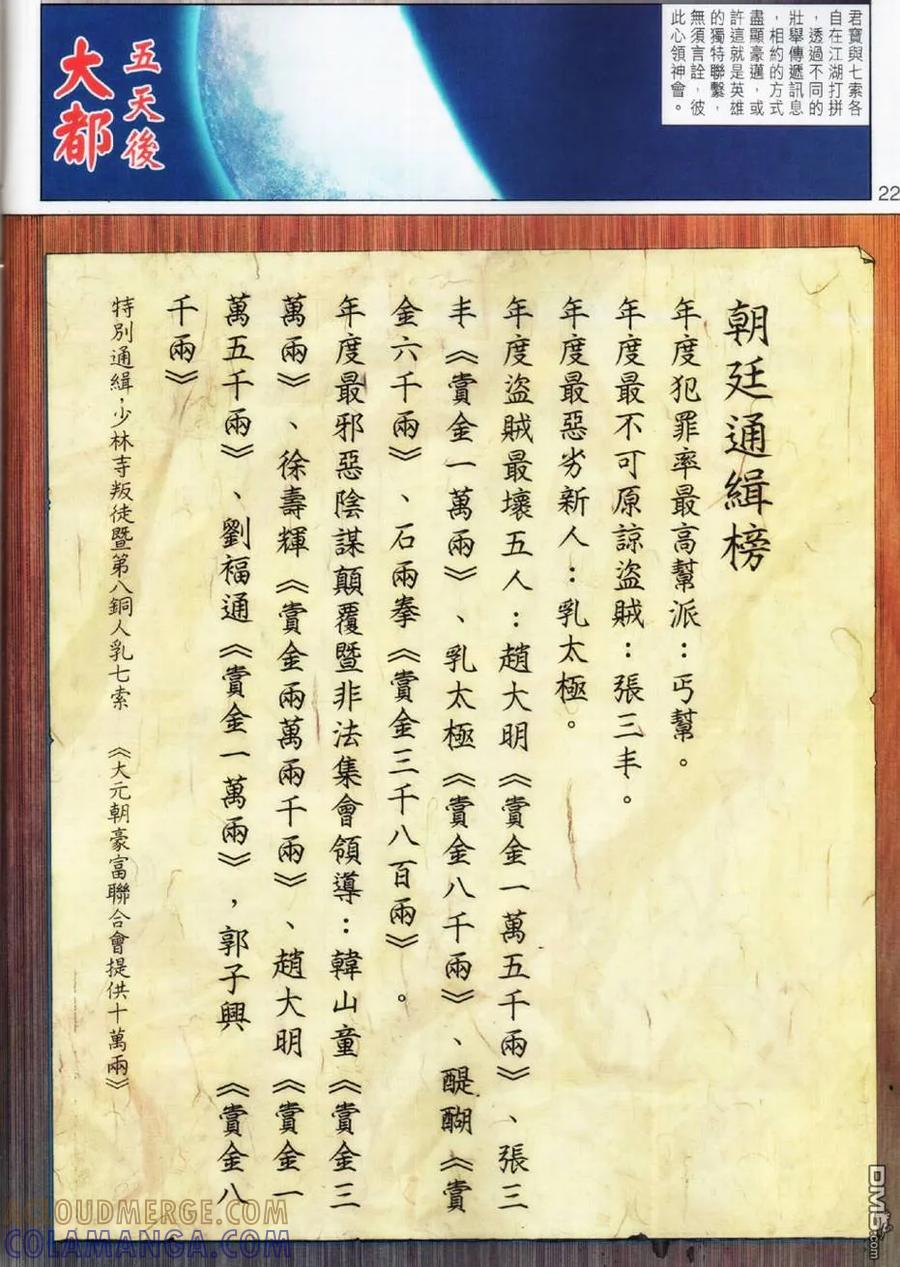 君寶與七索各
自在江湖打拼
，透過不同的
壯舉傳遞訊息
，相約的方式
盡顯豪邁，或
許這就是英雄
的獨特聯繫，
無須言詮，彼
此心領神會。
五天後
大都
22
朝廷通緝榜
年度犯罪率最高幫派：丐幫。
年度最不可原諒盜賊：張三丰。
年度最惡劣新人：乳太極。
年度盜賊最壞五人：趙大明《賞金一萬五千兩》、張三
丰《賞金一萬兩》、乳太極《賞金八千兩》、醍醐《賞
金六千兩》、石兩拳《賞金三千八百兩》。
年度最邪惡陰謀顛覆暨非法集會領導：韓山童《賞金三
萬兩》、徐壽輝《賞金兩萬兩千兩》、趙大明《賞金一
萬五千兩》、劉福通《賞金一萬兩》，郭子興《賞金八
千兩》
特別通緝，少林寺叛徒暨第八銅人乳七索 《大元朝豪富聯合會提供十萬兩》
ACLOUDMERGE.COM
COLAMANGA.COM
DM5.com